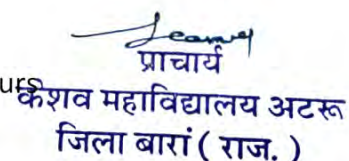 प्राचार्य
urs
केशव महाविद्यालय अटरू
जिला बारां ( राज. )